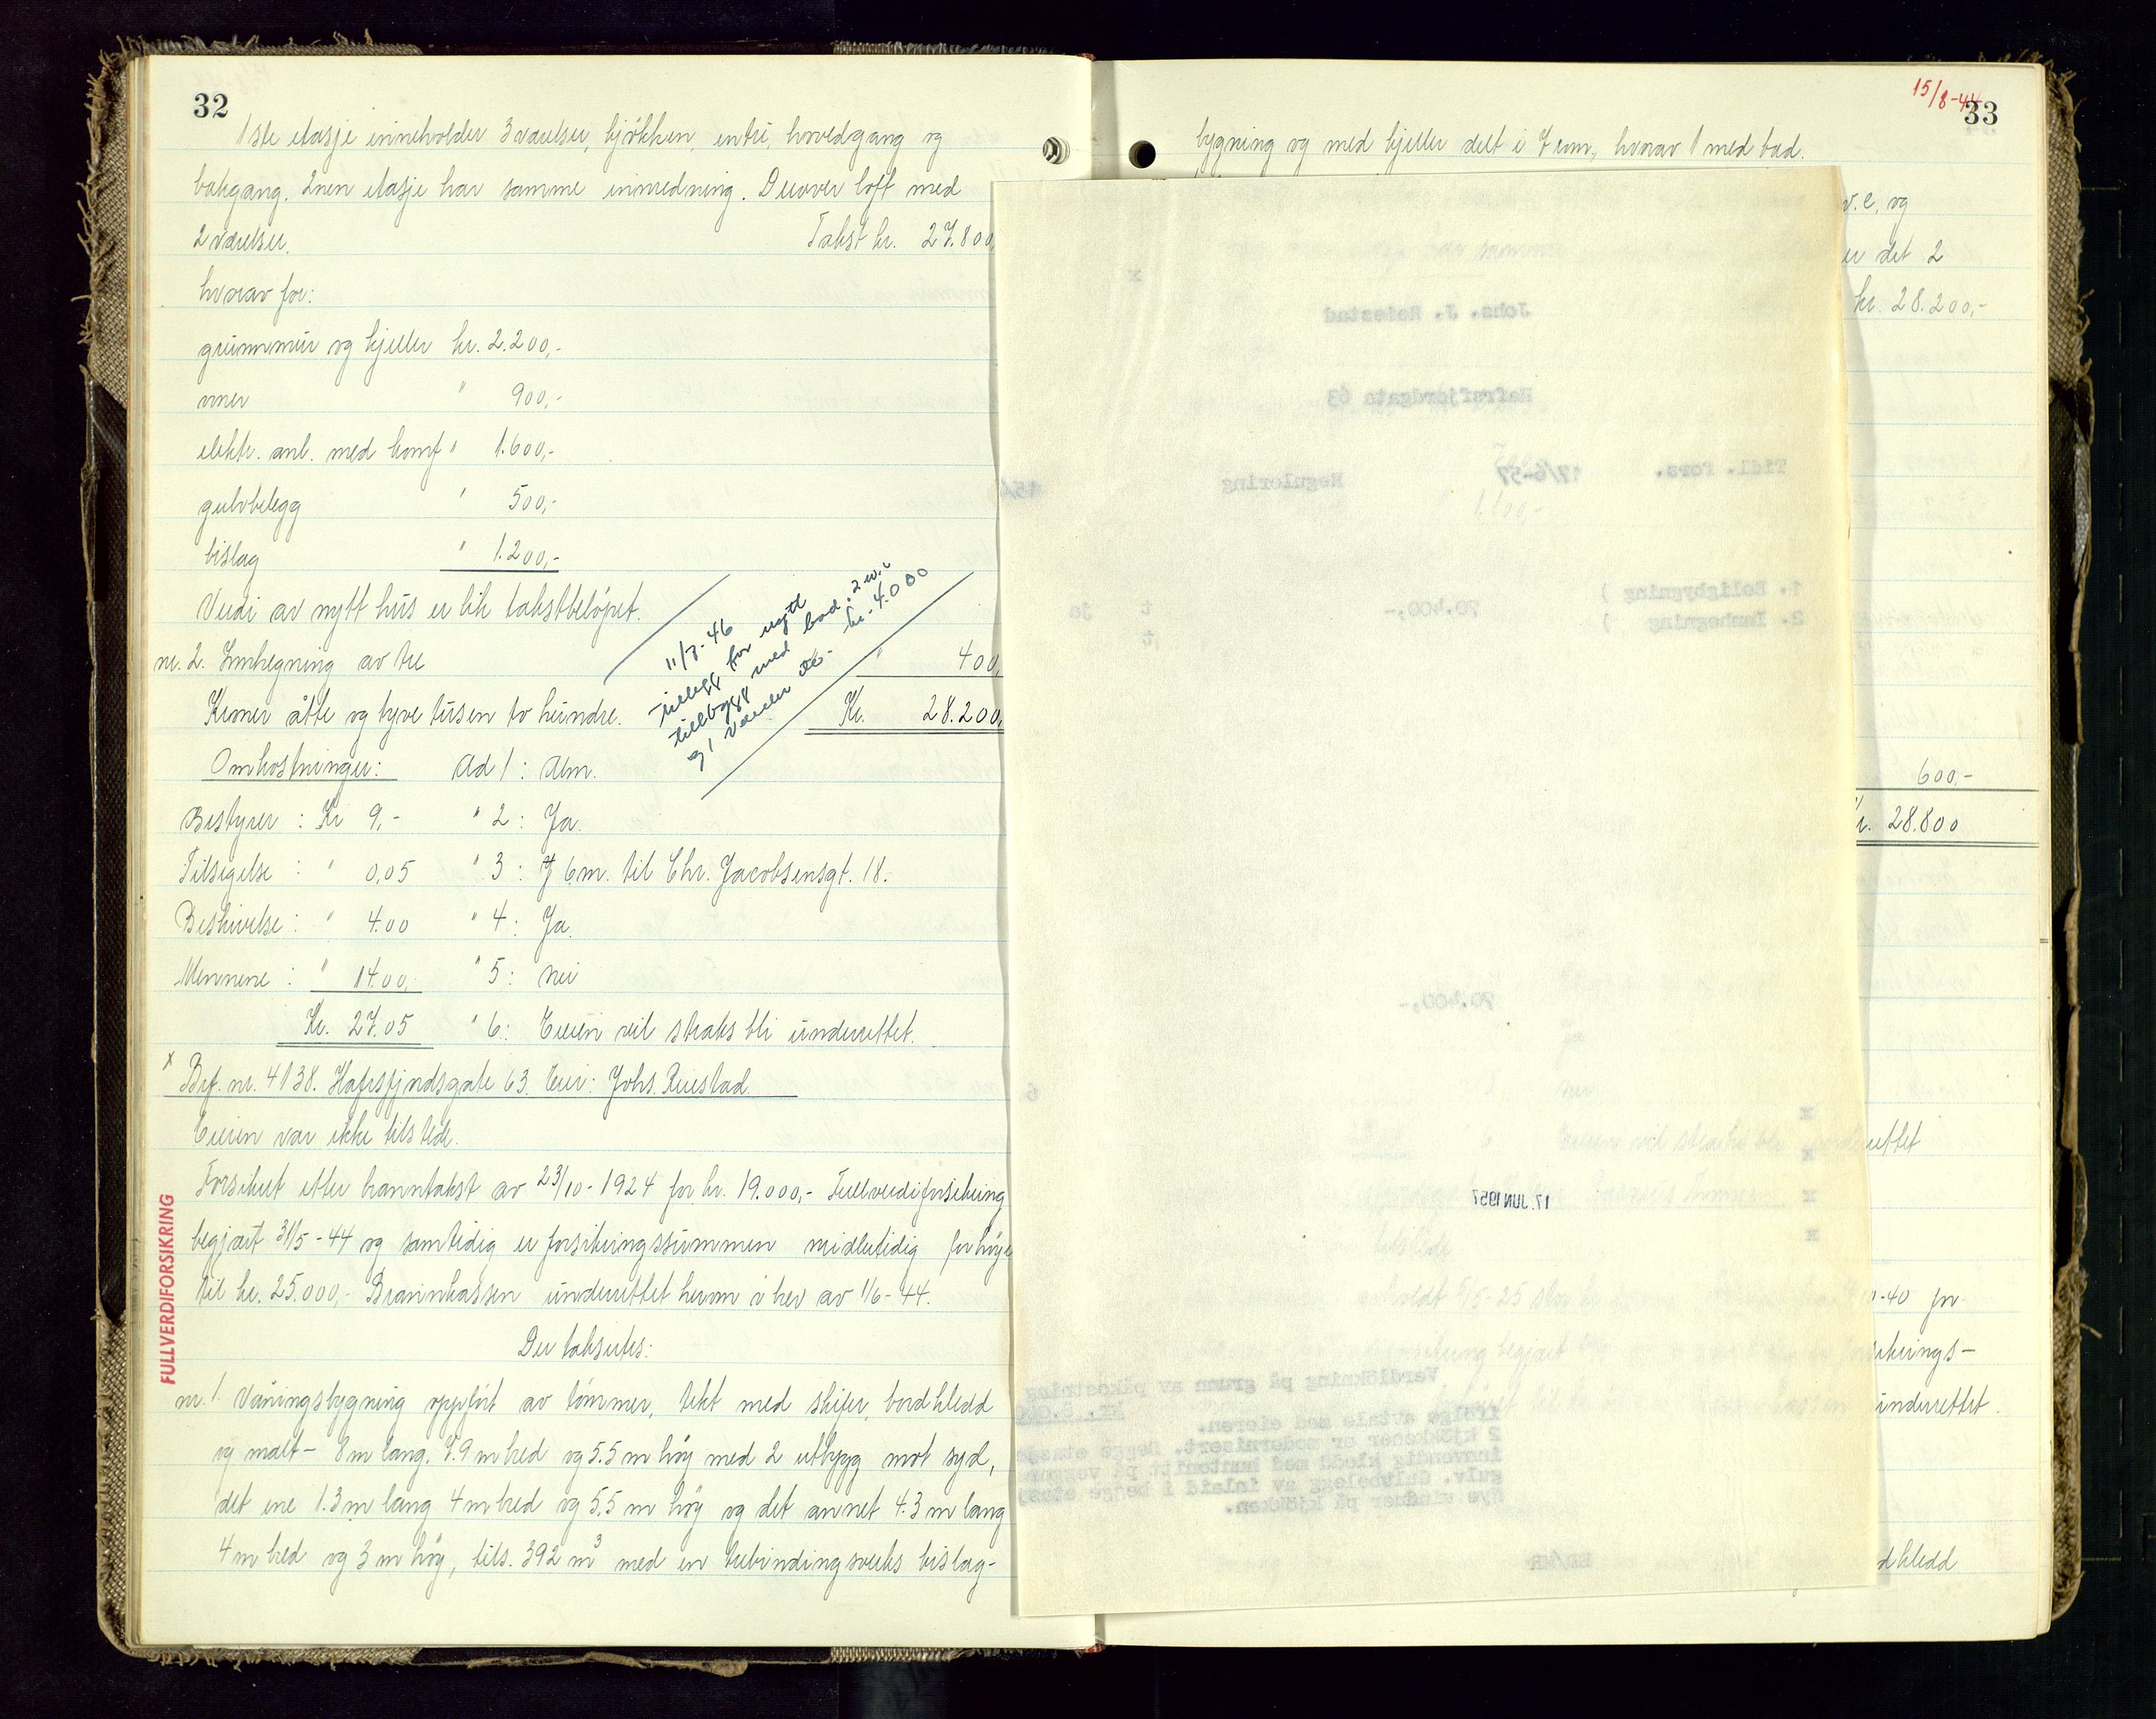 32
1ste etasje inneholder 3 værelser, kjökken, entré, hovedgang og
bakgang. 2nen etasje har samme innredning. Derover loft med
2 værelser. Takst kr. 27.800,
hvorav for:
grunnmur og kjeller kr. 2.200,-
ovner " 900,-
elektr. anl. med komf " 1.600,-
gulvbelegg " 500,-
bislag " 1.200,-
Verdi av nytt hus er lik takstbelöpet.
11/7-46
tillegg for nytt
tilbygg med bad, 2 w.c
og 1 værelse
kr. 4.000
nr. 2. Innhegning av tre " 400,
Kroner åtte og tyve tusen to hundre. Kr. 28.200,
Omkostninger: Ad 1: Alm.
Bestyrer : Kr 9,- " 2: Ja.
Tilsigelse : " 0,05 " 3: 7 6m. til Chr. Jacobsensgt. 18.
Beskrivelse : " 4.00 " 4: Ja.
Mennene : " 14.00, " 5: nei
Kr. 27.05 " 6: Eieren vil straks bli underrettet.
x Brf. nr. 4138. Hafrsfjordsgate 63. Eier: Johs. Reiestad.
Eieren var ikke tilstede.
Forsikret etter branntakst av 23/10-1924 for kr. 19.000,- Fullverdiforsikring
begjært 31/5-44 og samtidig er forsikringssummen midlertidig forhöye
til kr. 25.000,- Brannkassen underrettet herom i brev av 1/6-44.
Der takseres:
FULLVERDIFORSIKRING
nr. 1. Våningsbygning oppfört av tömmer, tekt med skifer, bordkledd
og malt- 8 m lang. 7.9 m bred og 5.5 m höy med 2 utbygg mot syd,
det ene 1.3 m lang 4 m bred og 5.5 m höy og det annet 4.3 m lang
4 m bred og 3 m höy, tils. 392 m³ med en trebindingsverks bislag-
15/8-44
33
bygning og med kjeller delt i 7 rom, hvorav 1 med bad.
v.c, og
er det 2
kr. 28.200,-
600,-
Kr. 28.800
rettet
-40 for
sikrings-
underrettet.
dkledd
Johs. J. Reiestad
Hafrsfjordgata 63
Tidl. fors. 17/6-57 Regulering
1. Boligbygning ) 70.400,- t ja
2. Innhegning ) t
70.400,-
6
17 JUN 1957
Verdiökning på grunn av påkostning
ifölge avtale med eieren.
2 kjökkener er modernisert. Begge etasje
innvendig kledd med huntonitt på veggene
gulv. Gulvbelegg av inlaid i begge etasj
Nye vinduer på kjökken.